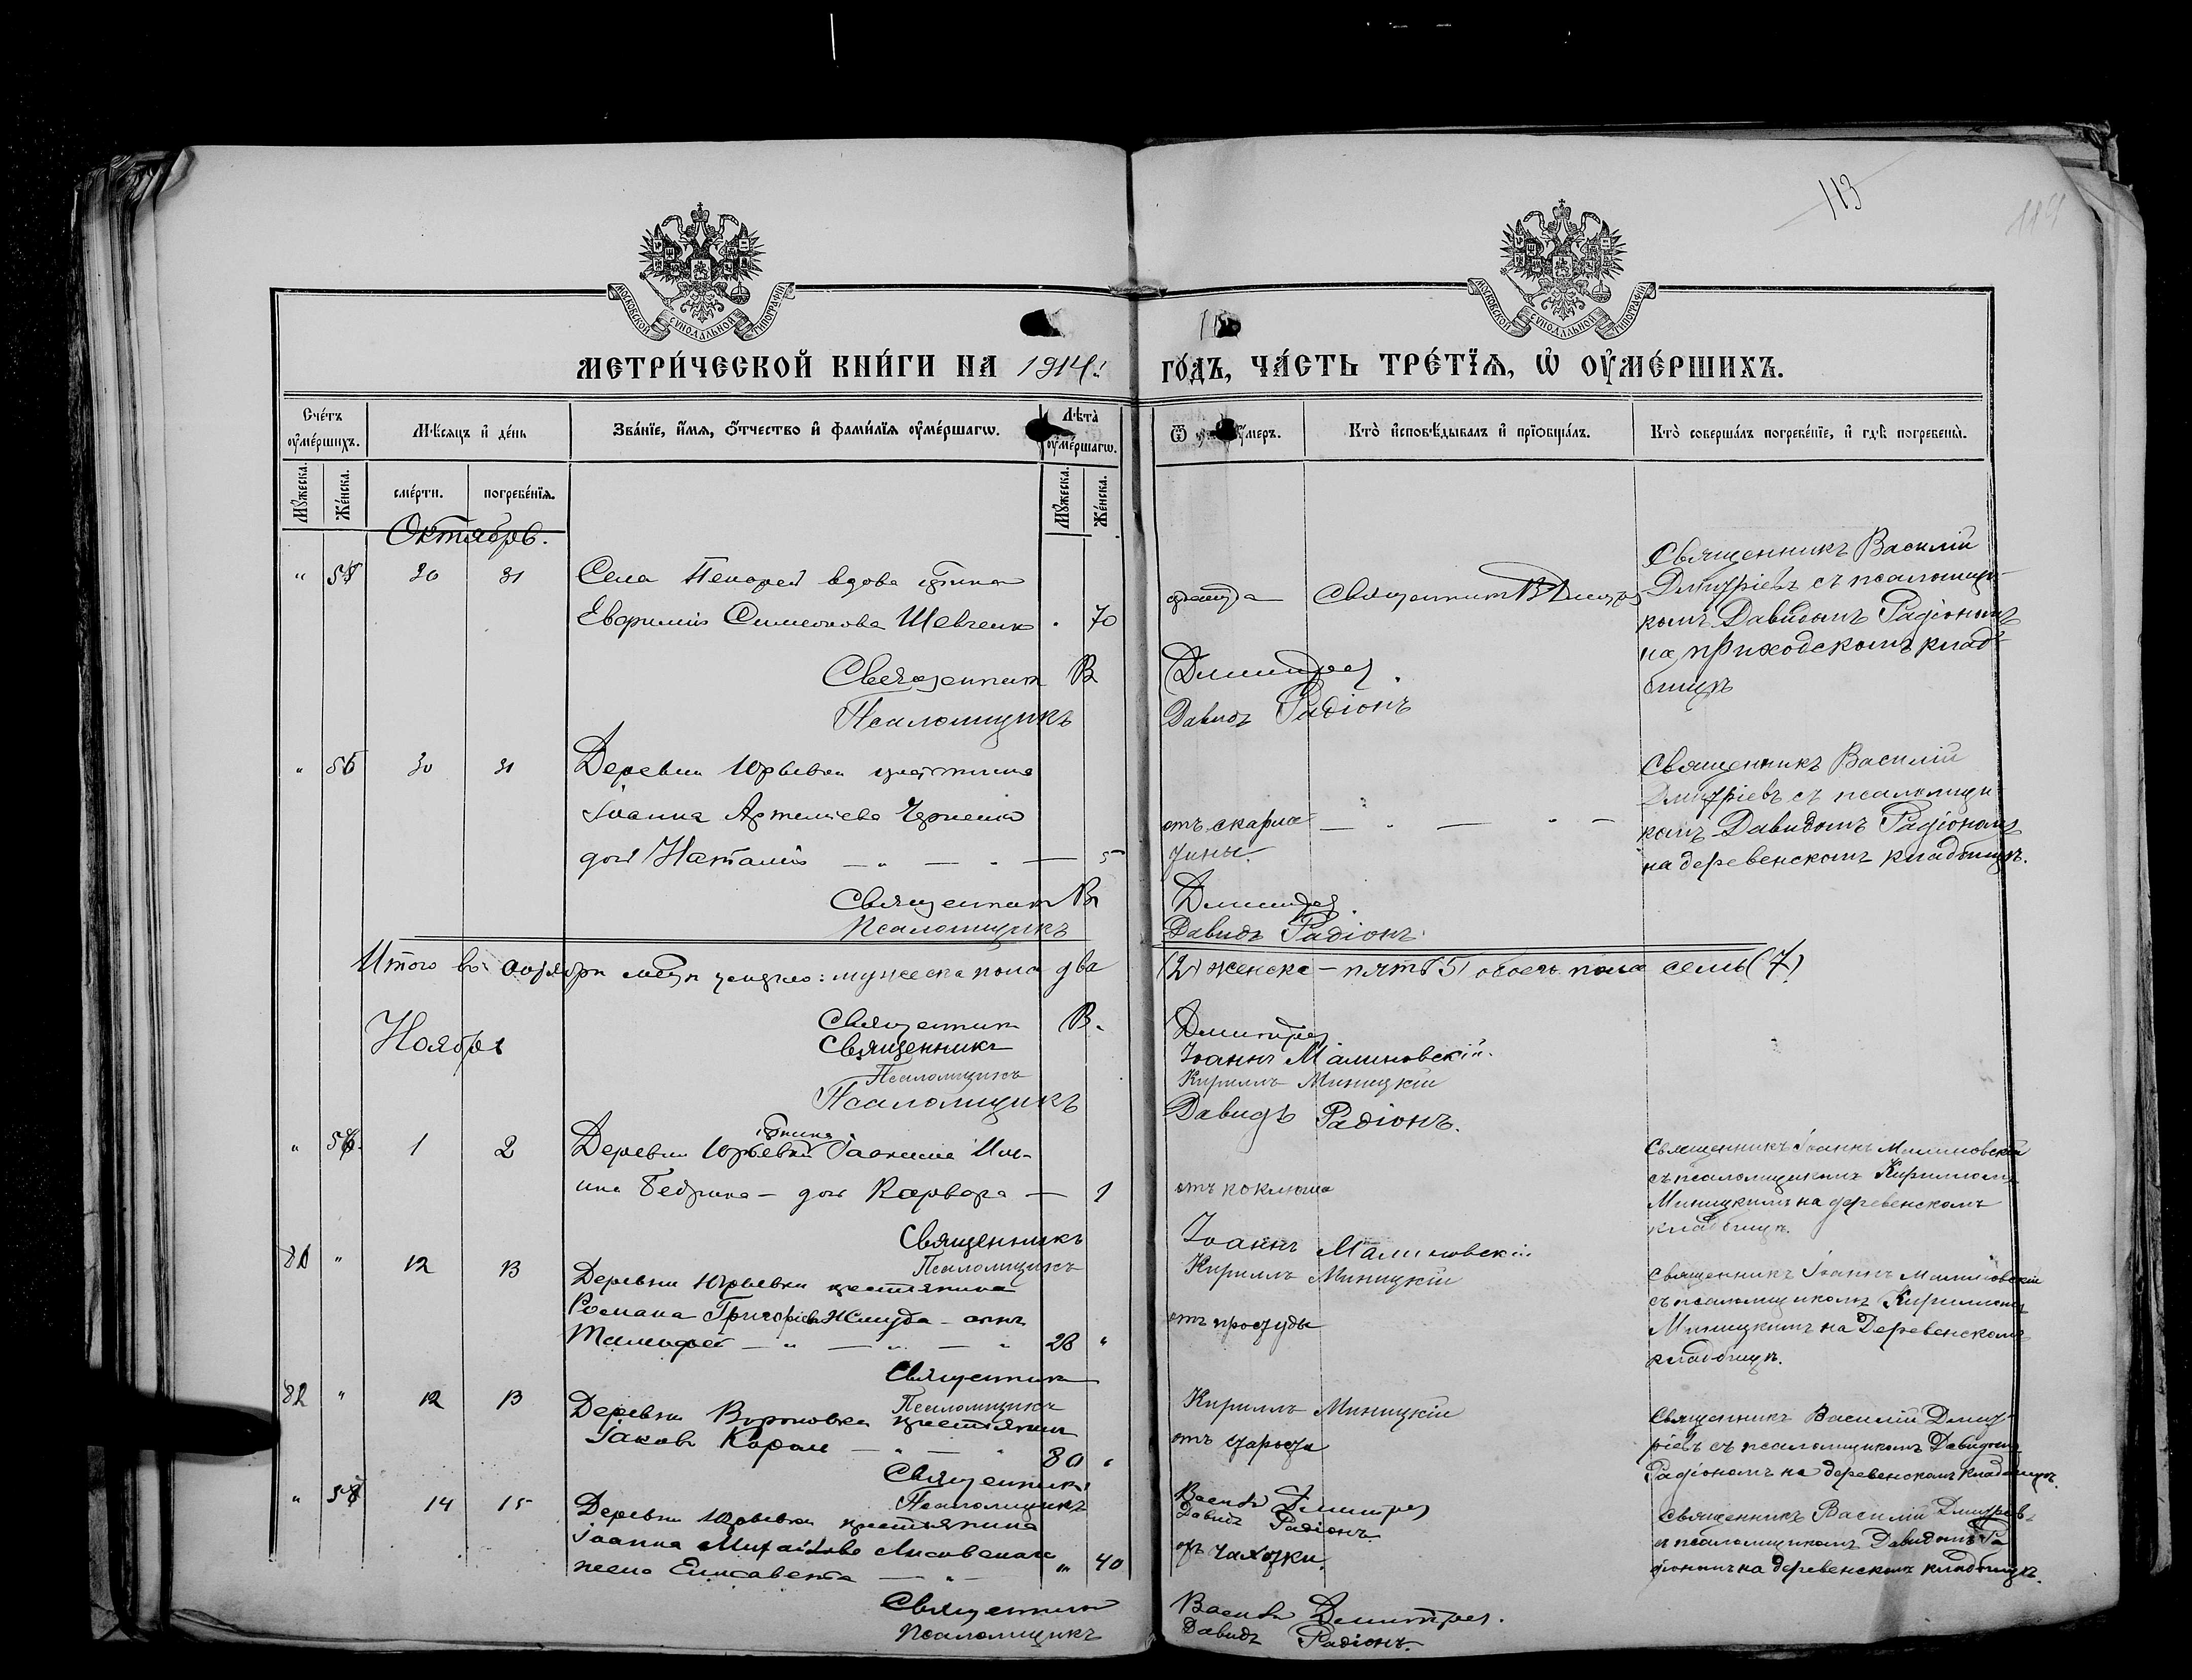 113
114
МОСКОВСКОЙ СѴНОДАЛЬНОЙ ТИПОГРАФІИ
МОСКОВСКОЙ СѴНОДАЛЬНОЙ ТИПОГРАФІИ
МЕТРИ́ЧЕСКОЙ КНИ́ГИ НА 1914
ГО́ДЪ, ЧА́СТЬ ТРЕ́ТЇѦ, Ѡ҆ ОУ҆МЕ́РШИХЪ.
Сче́тъ оу҆ме́ршихъ.
Мѣ́сѧцъ и҆ де́нь
Зва́нїе, и҆́мѧ, ѻ҆́тчество и҆ фами́лїѧ оу҆ме́ршагѡ.
Лѣ́та оу҆ме́ршагѡ.
Ѿ
оу҆́меръ.
Кто̀ и҆сповѣ́дывалъ и҆ прїѡбща́лъ.
Кто̀ соверша́лъ погребе́нїе, и҆ гдѣ̀ погребены̀.
Мꙋ́жеска.
Же́нска.
сме́рти.
погребе́нїѧ.
Мꙋ́жеска.
Же́нска.
Октябрь.
" 30 31 Села вдова
Симеонова Шевченко . 70
Священник В
Псаломщикъ
Димитрев
Давидъ Радіонъ
Священникъ Василій
Дмитріевъ съ псаломщи-
комъ Давидомъ Радіономъ
на приходскомъ клад-
бищѣ
" 55 30 31 Деревни Юрьевки
Іоанна Черненко
дочь Наталія — " — " — 5
Священник В
Псаломщикъ
отъ скарла-
тины.
Димитрев
Давидъ Радіонъ
Священникъ Василій
Дмитріевъ съ псаломщи-
комъ Давидомъ Радіономъ
на деревенскомъ кладбищѣ.
Итого въ октябрѣ умерло: мужеска пола два
(2) женска - пять (5) обоего пола семь (7)
Ноябрь
Священник В.
Священникъ
Псаломщикъ
Псаломщикъ
Димитрев
Іоаннъ Малиновскій.
Кириллъ Миницкій
Давидъ Радіонъ.
" 56. 1 2 Деревни Юрьевки
дочь Варвара — 1
Священникъ
Псаломщикъ
отъ коклюша
Іоаннъ Малиновскій
Кириллъ Миницкій
Священникъ Іоаннъ Малиновскій
съ псаломщикомъ Кирилломъ
Миницкимъ на деревенскомъ
кладбищѣ.
" 12 13 Деревни Юрьевки крестьянина
Романа Григоріева Жмуда - сынъ
— " — " — " 28 "
Священник
Псаломщикъ
отъ простуды
Кириллъ Миницкій
Священникъ Іоаннъ Малиновскій
съ псаломщикомъ Кирилломъ
Миницкимъ на Деревенскомъ
кладбищѣ.
82 " 12 13 Деревни Вороновки крестьянин
Іаковъ — " — " 80 "
Священник
Псаломщикъ
отъ старости
Василій Димитрев
Давидъ Радіонъ
Священникъ Василій Дмит-
ріевъ съ псаломщикомъ Давидомъ
Радіономъ на деревенскомъ кладбищѣ
" 14 15 Деревни Юрьевки крестьянина
Іоанна Михайлова
жена Елисавета — " — " 40
Священник
Псаломщикъ
отъ чахотки.
Василій Димитрев.
Давидъ Радіонъ.
Священникъ Василій Дмитріевъ
съ псаломщикомъ Давидомъ Ра-
діономъ на деревенскомъ кладбищѣ.